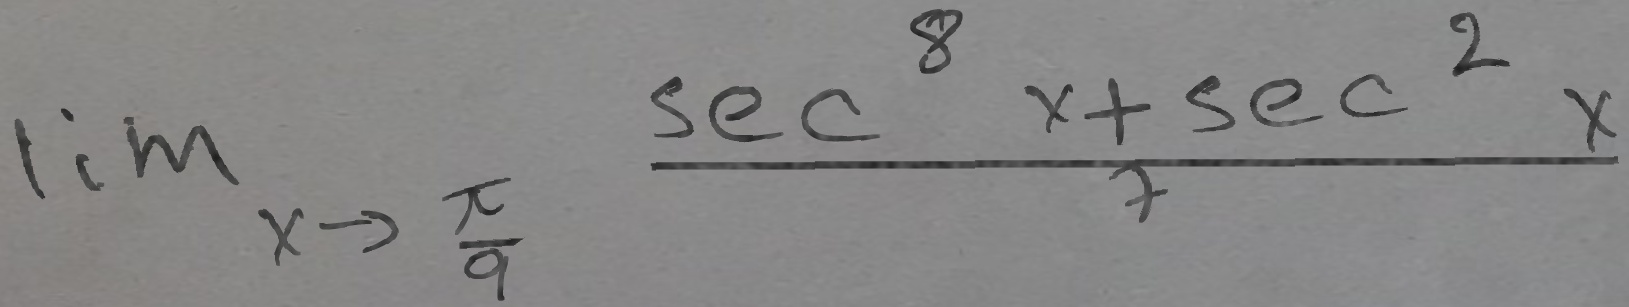 \lim_{x \to \frac{\pi}{9}} \frac{\sec^8 x + \sec^2 x}{7}